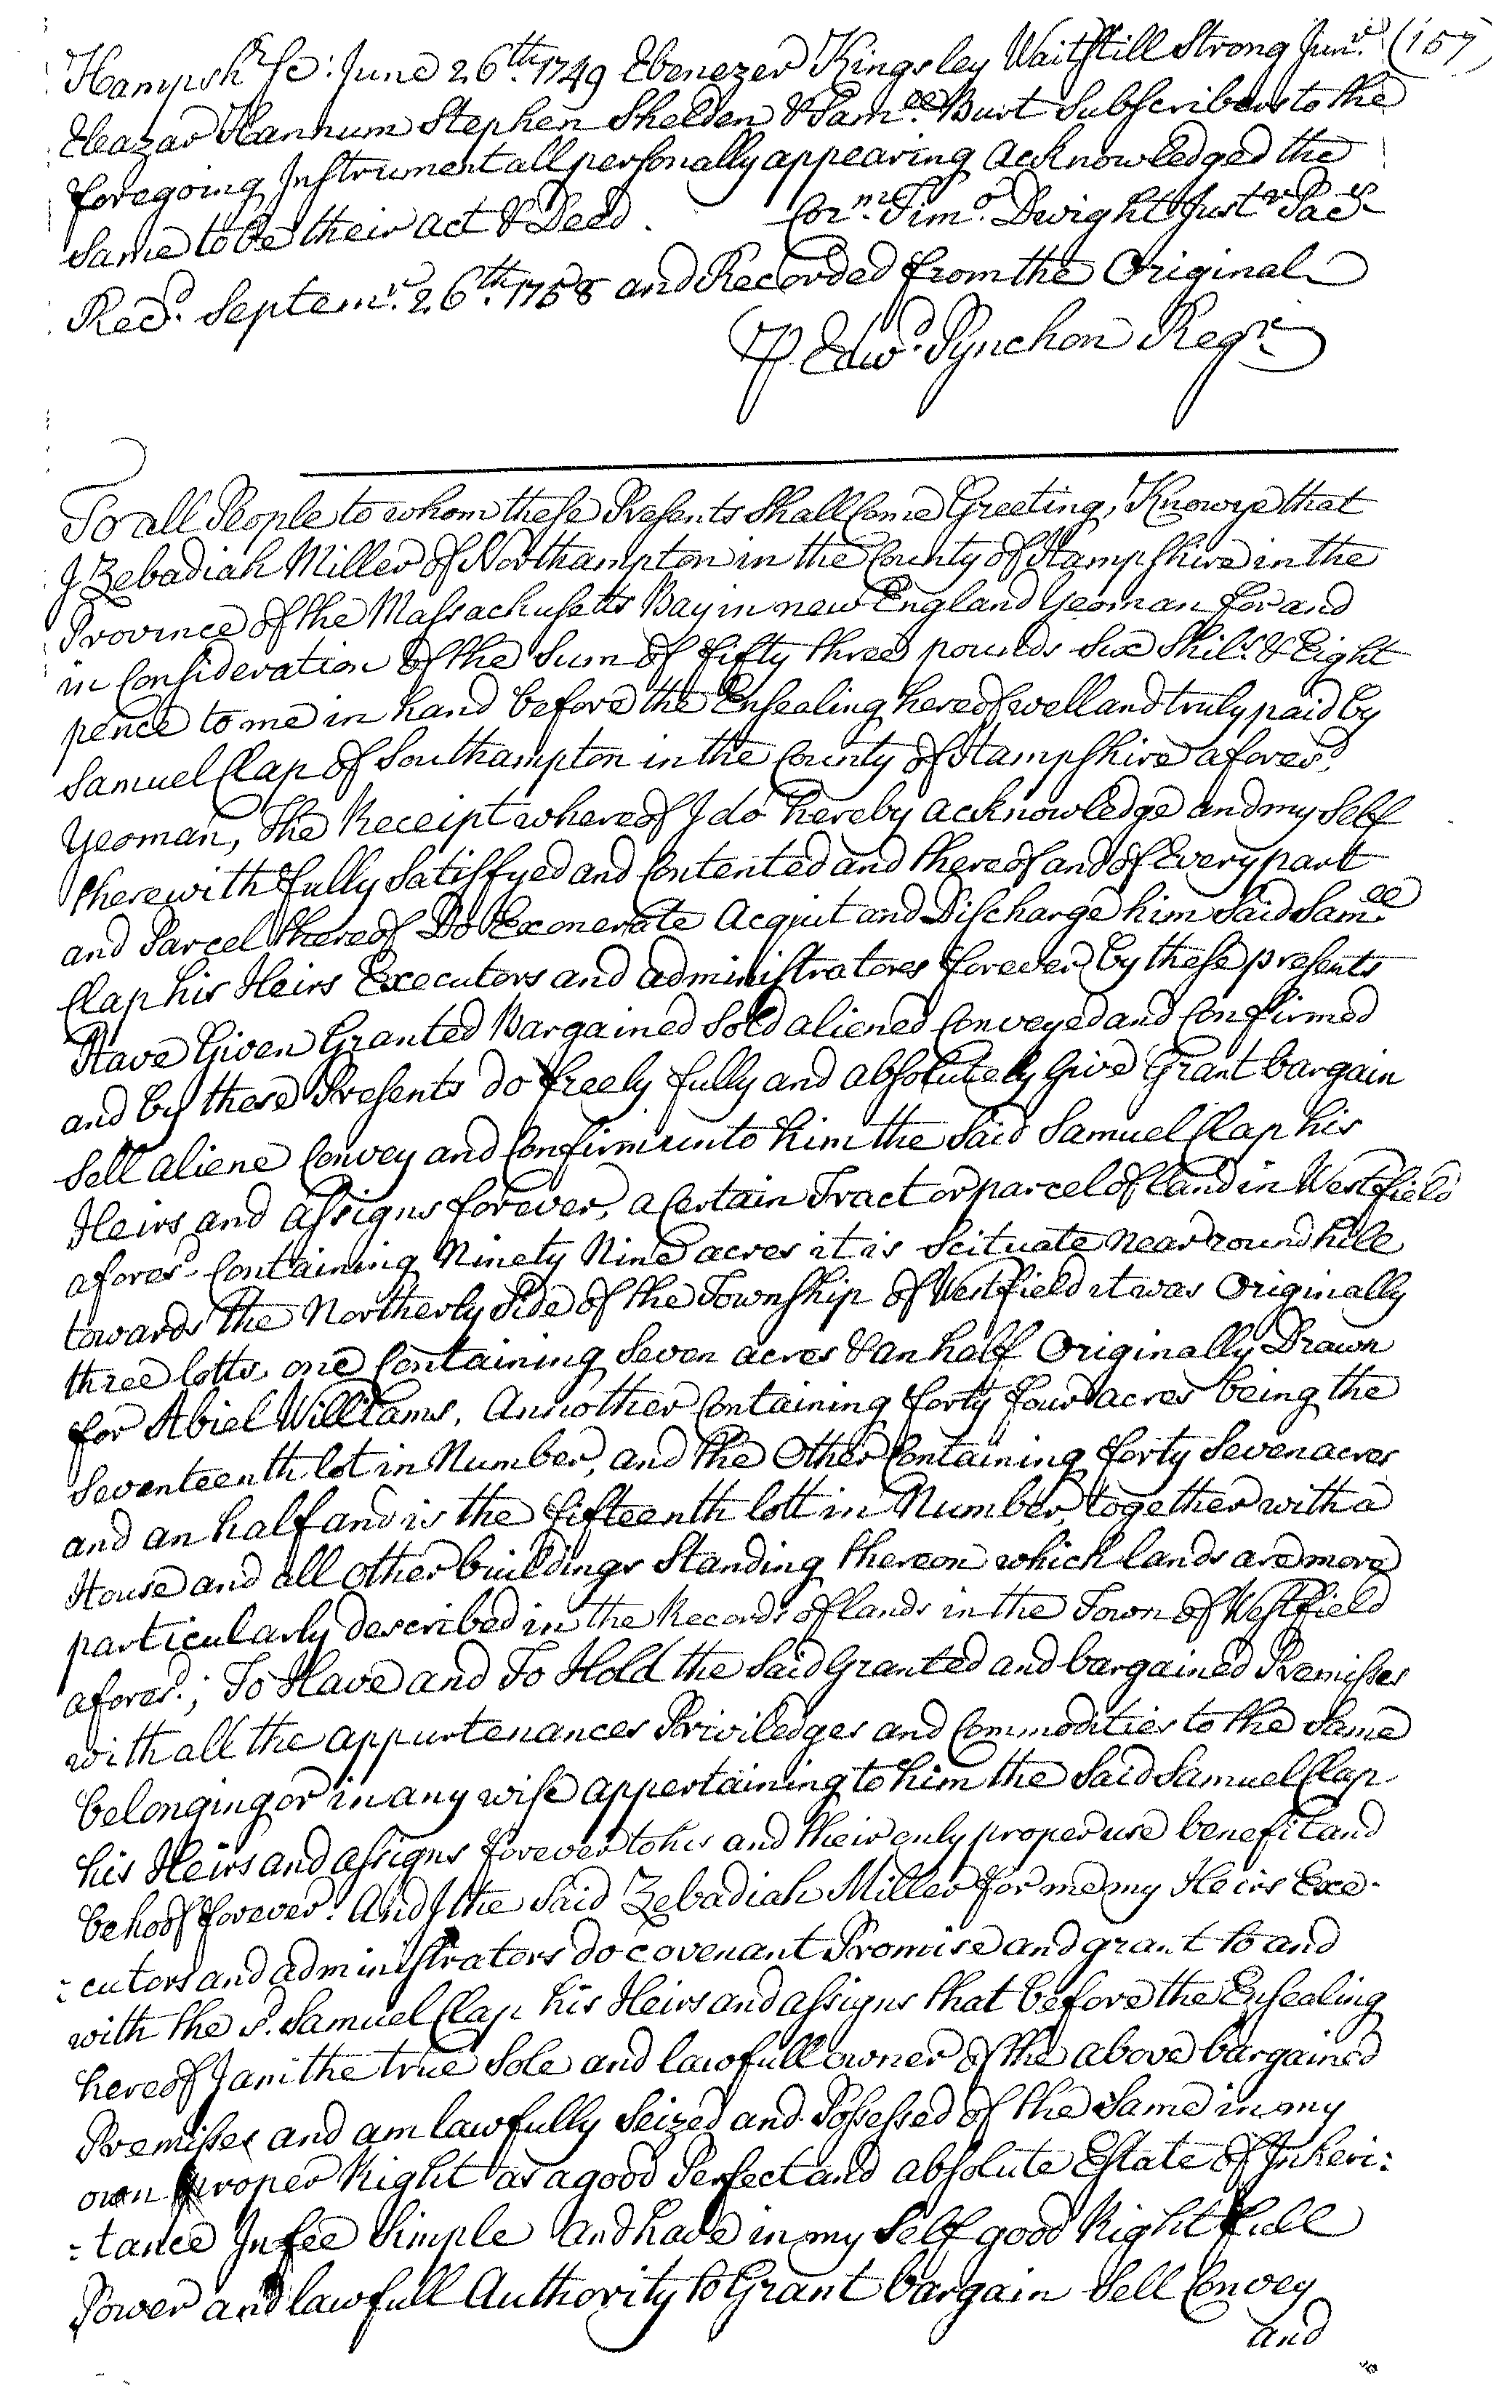 Hampsh.r Sc: June 26.th 1749 Ebenezer Kingsley Waitstill Strong Jun.r (157)
Eleazar Hannum Stephen Shelden & Sam.ll Burt Subscribers to the
foregoing Instrument all personally appearing acknowledged the
Same to be their act & Deed. Cor.m Tim.o Dwight Just.e Pac.s
Rec.d Septem.r 26.th 1758 and Recorded from the Original
P. Edw.d Pynchon Reg.r
To all People to whom these Presents Shall Come Greeting, Know ye that
I Zebadiah Miller of Northampton in the County of Hampshire in the
Province of the Massachusetts Bay in new England Yeoman for and
in Consideration of the Sum of fifty three pounds Six Shil.s & Eight
pence to me in hand before the Ensealing hereof well and truly paid by
Samuel Clap of Southampton in the County of Hampshire afores.d
Yeoman, The Receipt whereof I do hereby acknowledge and my Self
therewith fully Satisfyed and Contented and thereof and of Every part
and Parcel thereof Do Exonerate Acquit and Discharge him Said Sam.ll
Clap his Heirs Executors and administratores forever by these presents
Have Given Granted Bargained Sold aliened Conveyed and Confirmed
and by these Presents do freely fully and absolutely Give Grant bargain
Sell aliene Convey and Confirm unto him the Said Samuel Clap his
Heirs and assigns forever, a Certain Tract or parcel of land in Westfield
afores.d Containing Ninety Nine acres it is Scituate near round hill
towards the Northerly Side of the Township of Westfield it was Originally
three lotts one Containing Seven acres & an half Originally Drawn
for Abiel Williams, Annother Containing forty four acres being the
Seventeenth lot in Number, and the Other Containing forty Seven acres
and an half and is the fifteenth lott in Number, together with a
House and all other buildings Standing thereon which lands are more
particularly described in the Records of lands in the Town of Westfield
afores.d; To Have and To Hold the Said Granted and bargained Premisses
with all the appurtenances Priviledges and Commodities to the Same
belonging or in any wise appertaining to him the Said Samuel Clap
his Heirs and assigns forever to his and their only proper use benefit and
behoof forever. And I the Said Zebadiah Miller for me my Heirs Exe-
:cutors and administrators do covenant Promise and grant to and
with the s.d Samuel Clap his Heirs and assigns that before the Ensealing
hereof I am the true Sole and lawfull owner of the above bargained
Premisses and am lawfully Seized and Possessed of the Same in my
own proper Right as a good Perfect and absolute Estate of Inheri:
:tance In fee Simple And have in my Self good Right full
Power and lawfull Authority to Grant bargain Sell Convey
and